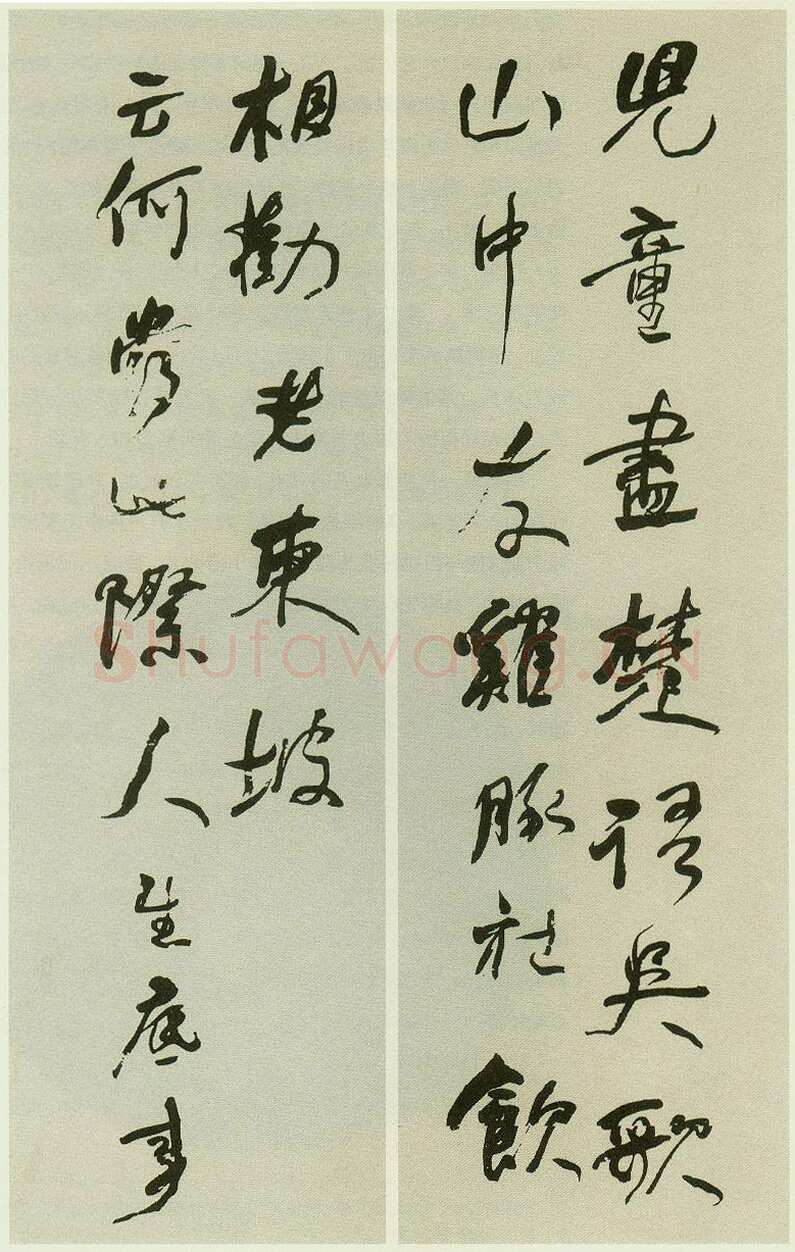 兒童盡楚語吳歌
山中友雞豚社飲
相勸老東坡
云何當此際人生底事
Shufawang.CN